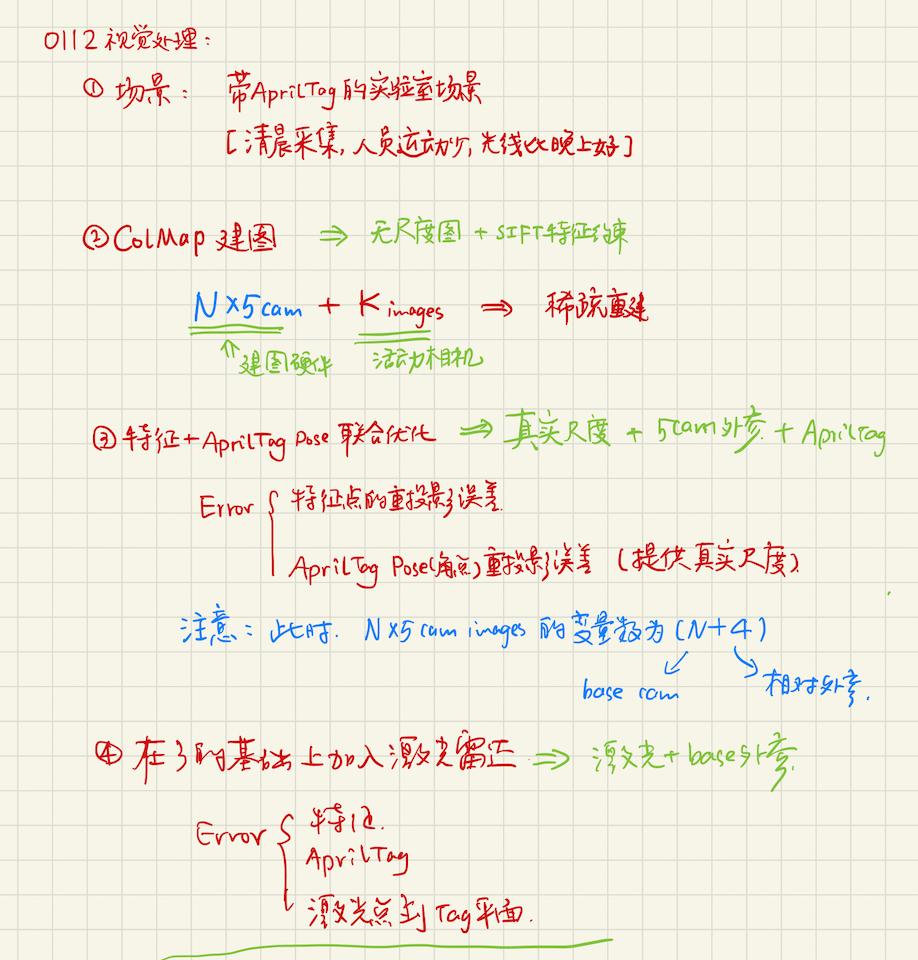 0112 视觉处理:
① 场景: 带AprilTag的实验室场景
[清晨采集, 人员运动少, 光线比晚上好]
② ColMap 建图 ⇒ 无尺度图 + SIFT特征约束
N×5cam + K images ⇒ 稀疏重建
↑建图硬件 活动相机
③ 特征+AprilTag Pose 联合优化 ⇒ 真实尺度 + 5cam外参 + AprilTag
Error { 特征点的重投影误差.
AprilTag Pose(角点)重投影误差 (提供真实尺度).
注意: 此时. N×5 cam images 的变量数为 (N+4)
base cam 相对外参.
④ 在3的基础上加入激光雷达 ⇒ 激光+base外参.
Error { 特征.
AprilTag
激光点到Tag平面.